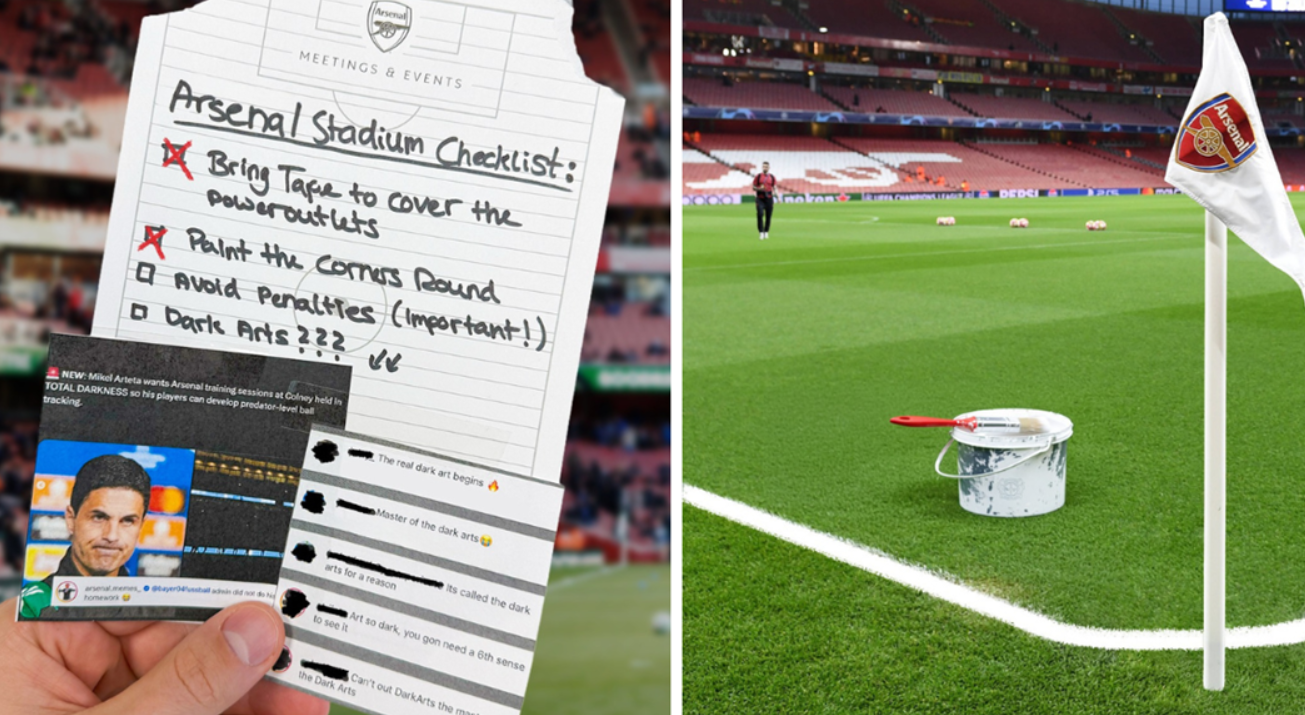 Arsenal
MEETINGS & EVENTS
Arsenal Stadium Checklist:
Bring Tape to cover the
poweroutlets
Paint the Corners Round
Avoid Penalties (Important!)
Dark Arts???
NEW: Mikel Arteta wants Arsenal training sessions at Colney held in
TOTAL DARKNESS so his players can develop predator-level ball
tracking.
arsenal.memes_ @bayer04fussball admin did not do
homework 😂
The real dark art begins 🔥
Master of the dark arts😂
Its called the dark
arts for a reason
Art so dark, you gon need a 6th sense
to see it
Can't out DarkArts the
the Dark Arts
Arsenal
PEPSI
UEFA CHAMPIONS LEAGUE